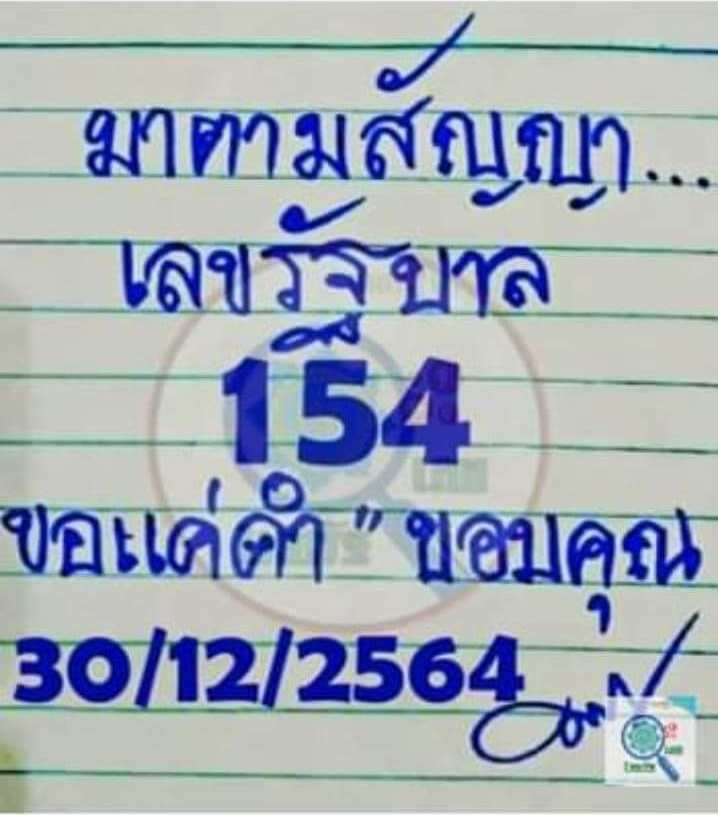 มาตามสัญญา...
เลขรัฐบาล
154
ขอแค่คำ " ขอบคุณ
30/12/2564